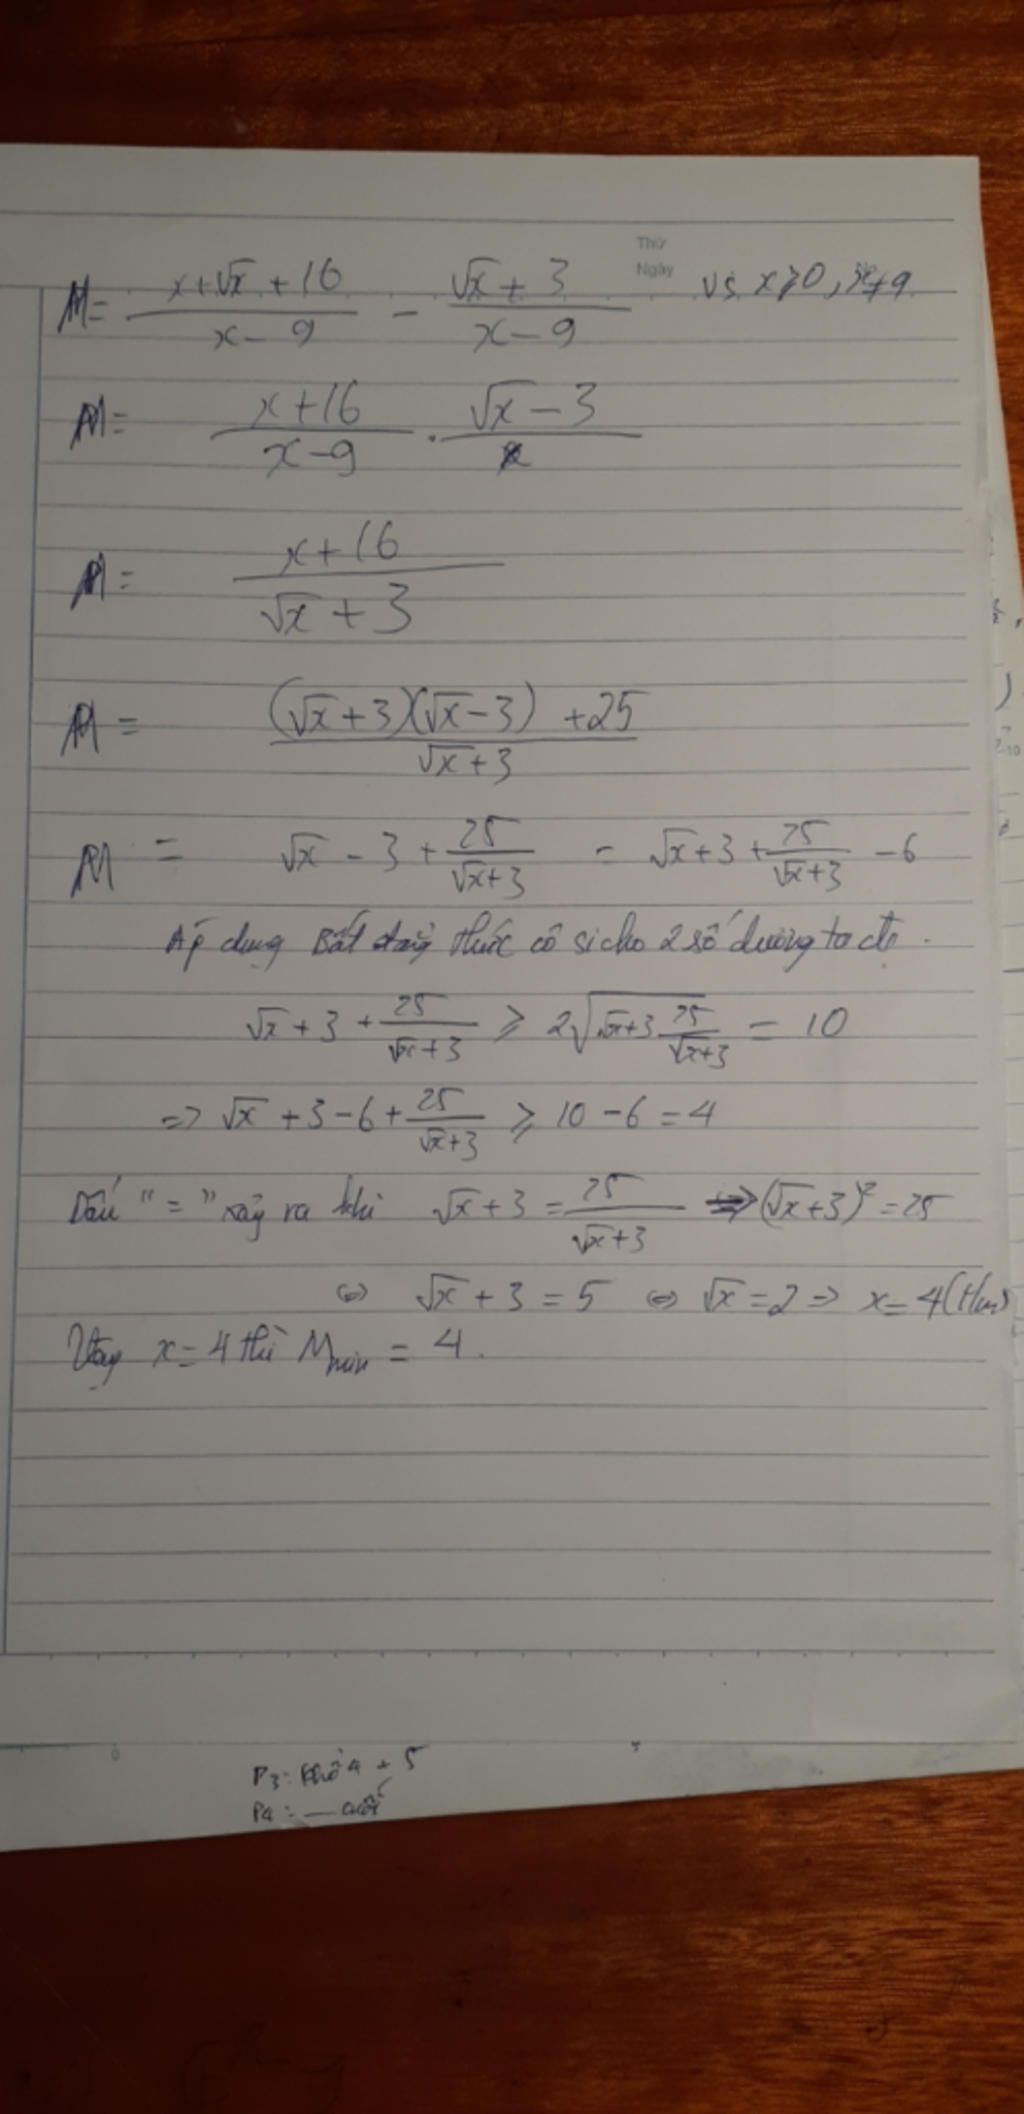 Thứ
Ngày
M = (x+√x+16)/(x-9) - (√x+3)/(x-9) với x≥0, x≠9
M = (x+16)/(x-9) . (√x-3)/
M = (x+16)/(√x+3)
M = ((√x+3)(√x-3)+25)/(√x+3)
M = √x-3+25/(√x+3) = √x+3+25/(√x+3) -6
Áp dụng Bất đẳng thức cô si cho 2 số dương ta
√x+3+25/(√x+3) ≥ 2√(√x+3 . 25/(√x+3)) = 10
=> √x+3-6+25/(√x+3) ≥ 10-6=4
Dấu "=" xảy ra khi √x+3=25/(√x+3) => (√x+3)²=25
<=> √x+3=5 <=> √x=2 => x=4
Vậy x=4 thì Mmin = 4.
P3: khổ 4 + 5
P4: — cuối